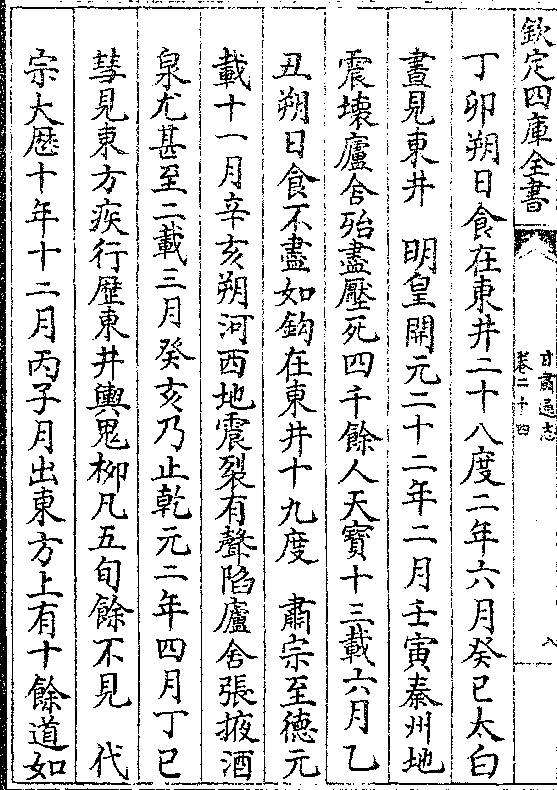 欽定四庫全書
甘肅通志
卷二十四
八
丁卯朔日食在東井二十八度二年六月癸巳太白
晝見東井　明皇開元二十二年二月壬寅秦州地
震壞廬舍殆盡壓死四千餘人天寶十三載六月乙
丑朔日食不盡如鈎在東井十九度　肅宗至德元
載十一月辛亥朔河西地震裂有聲陷廬舍張掖酒
泉尤甚至二載三月癸亥乃止乾元二年四月丁巳
彗見東方疾行歷東井輿鬼柳凡五旬餘不見　代
宗大歷十年十二月丙子月出東方上有十餘道如